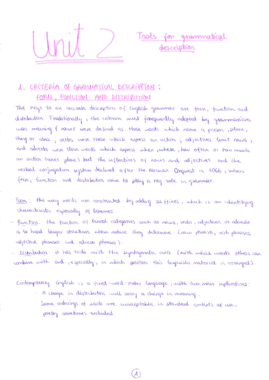 Unit 2
Tools for grammatical
description
1. CRITERIA OF GRAMMATICAL DESCRIPTION:
FORM, FUNCTION AND DISTRIBUTION
The keys to an accurate description of English grammar are form, function and
distribution. Traditionally, the criterion most frequently adopted by grammarians
was meaning: nouns were defined as those words which name a person, place,
thing or idea; verbs were those which express an action; adjectives
and adverbs were those words which express when, where, how often or how much
an action takes place; but the inflections of nouns and adjectives and the
verbal conjugation system declined after the Norman Conquest in 1066, when
form, function and distribution came to play a key role in grammar.
- Form: the way words are constructed by adding affixes, which is an identifying
characteristic especially of lexemes.
- Function: the function of lexical categories such as nouns, verbs, adjectives or adverbs
is to head larger structures whose nature they determine (noun phrases, verb phrases,
adjective phrases and adverb phrases).
- Distribution: it has to do with the syntagmatic axis (with which words others can
combine with and, especially, in which position this linguistic material is arranged).
Contemporary English is a fixed-word-order language, with two main implications:
A change in distribution will carry a change in meaning.
Some orderings of words are unacceptable in standard contexts of use,
poetry sometimes excluded.
1